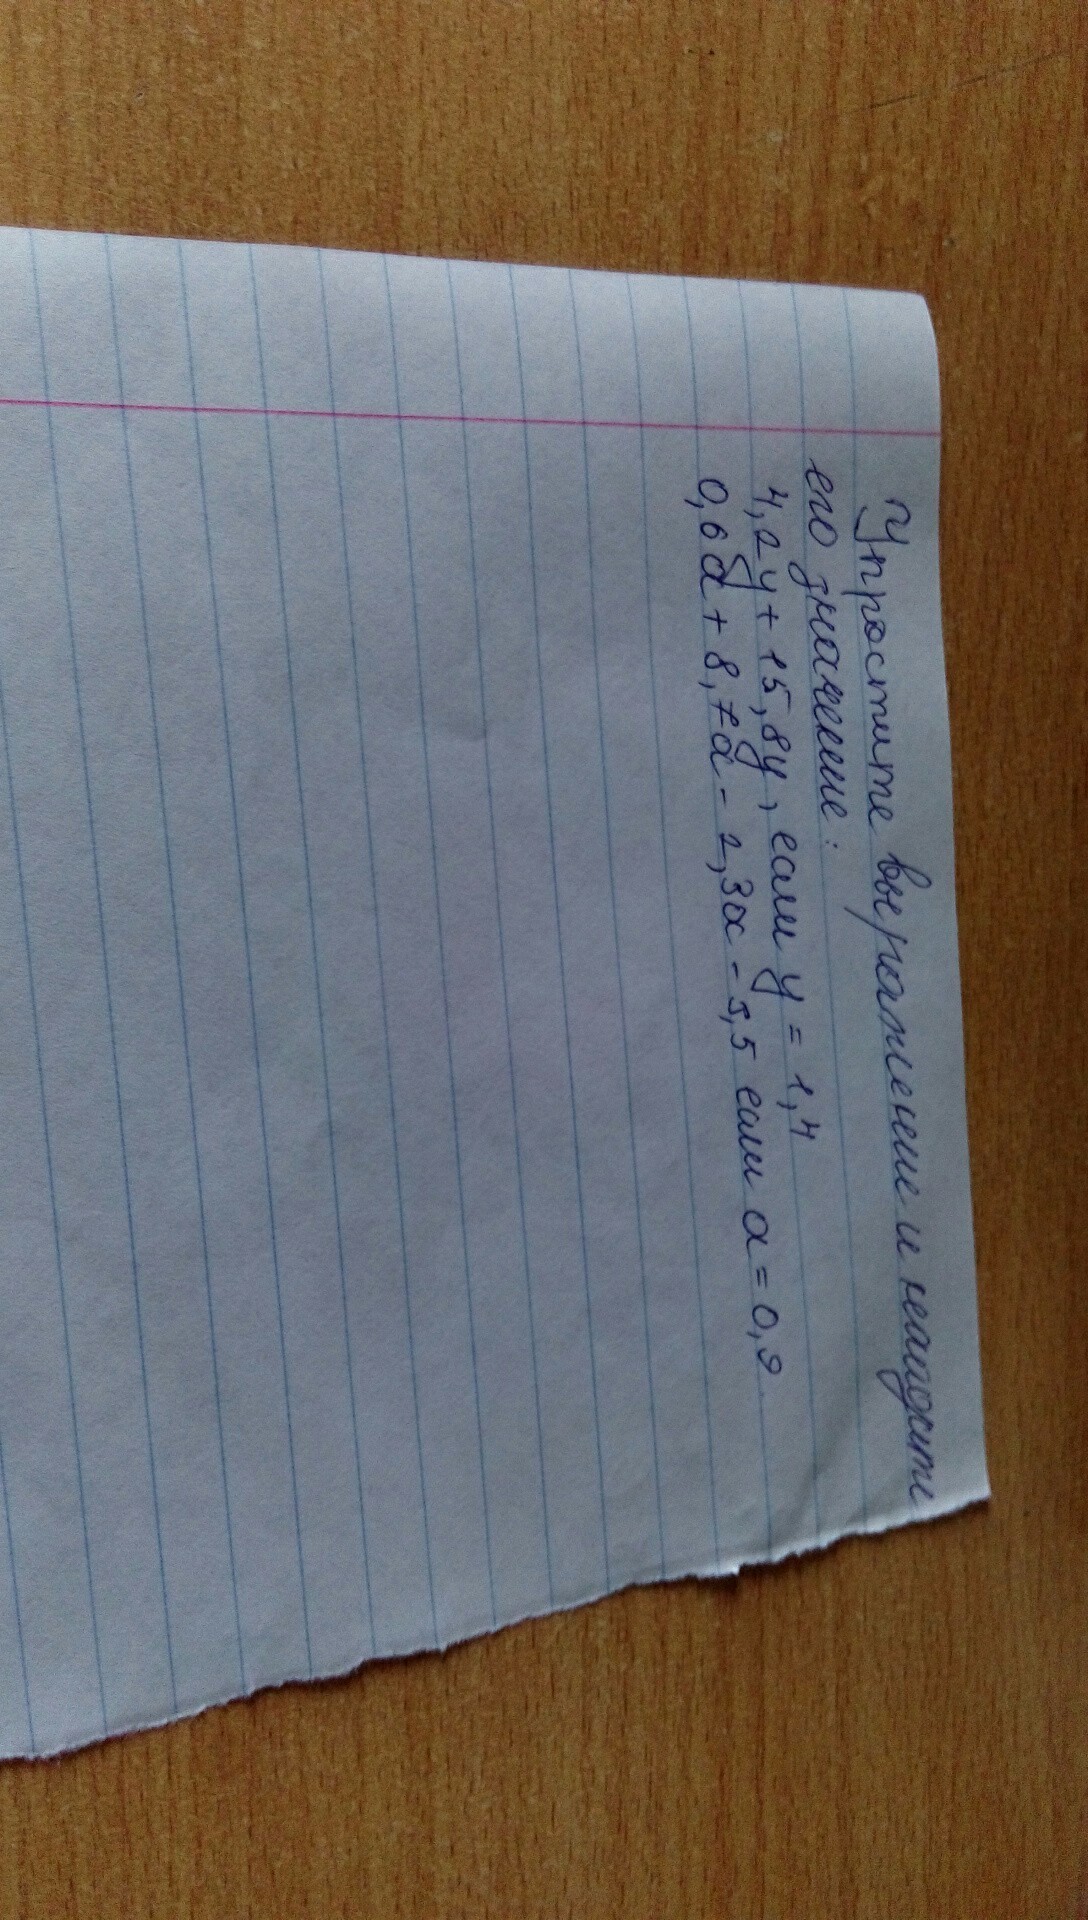 Упростите выражение и найдите
его значение:
4,2y + 15,8y, если y = 1,4
0,6a + 8,7a - 2,3a - 5,5 если a = 0,9.